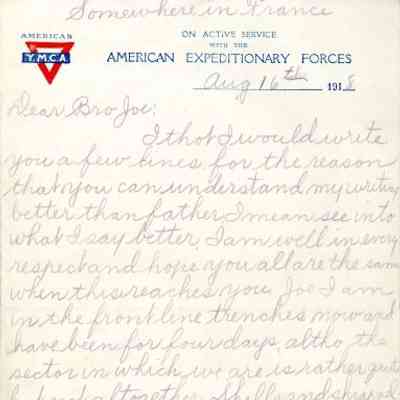 Somewhere in France
AMERICAN
Y.M.C.A.
ON ACTIVE SERVICE
WITH THE
AMERICAN EXPEDITIONARY FORCES
Aug 16th 1918
Dear Bro Joe:
I thot I would write
you a few lines for the reason
that you can understand my writing
better than father I mean see into
what I say better, I am well in every
respect and hope you all are the same
when this reaches you. Joe I am
in the front line trenches now and
have been for four days, altho the
sector in which we are is rather quiet
altogether. Shells and shrapnel